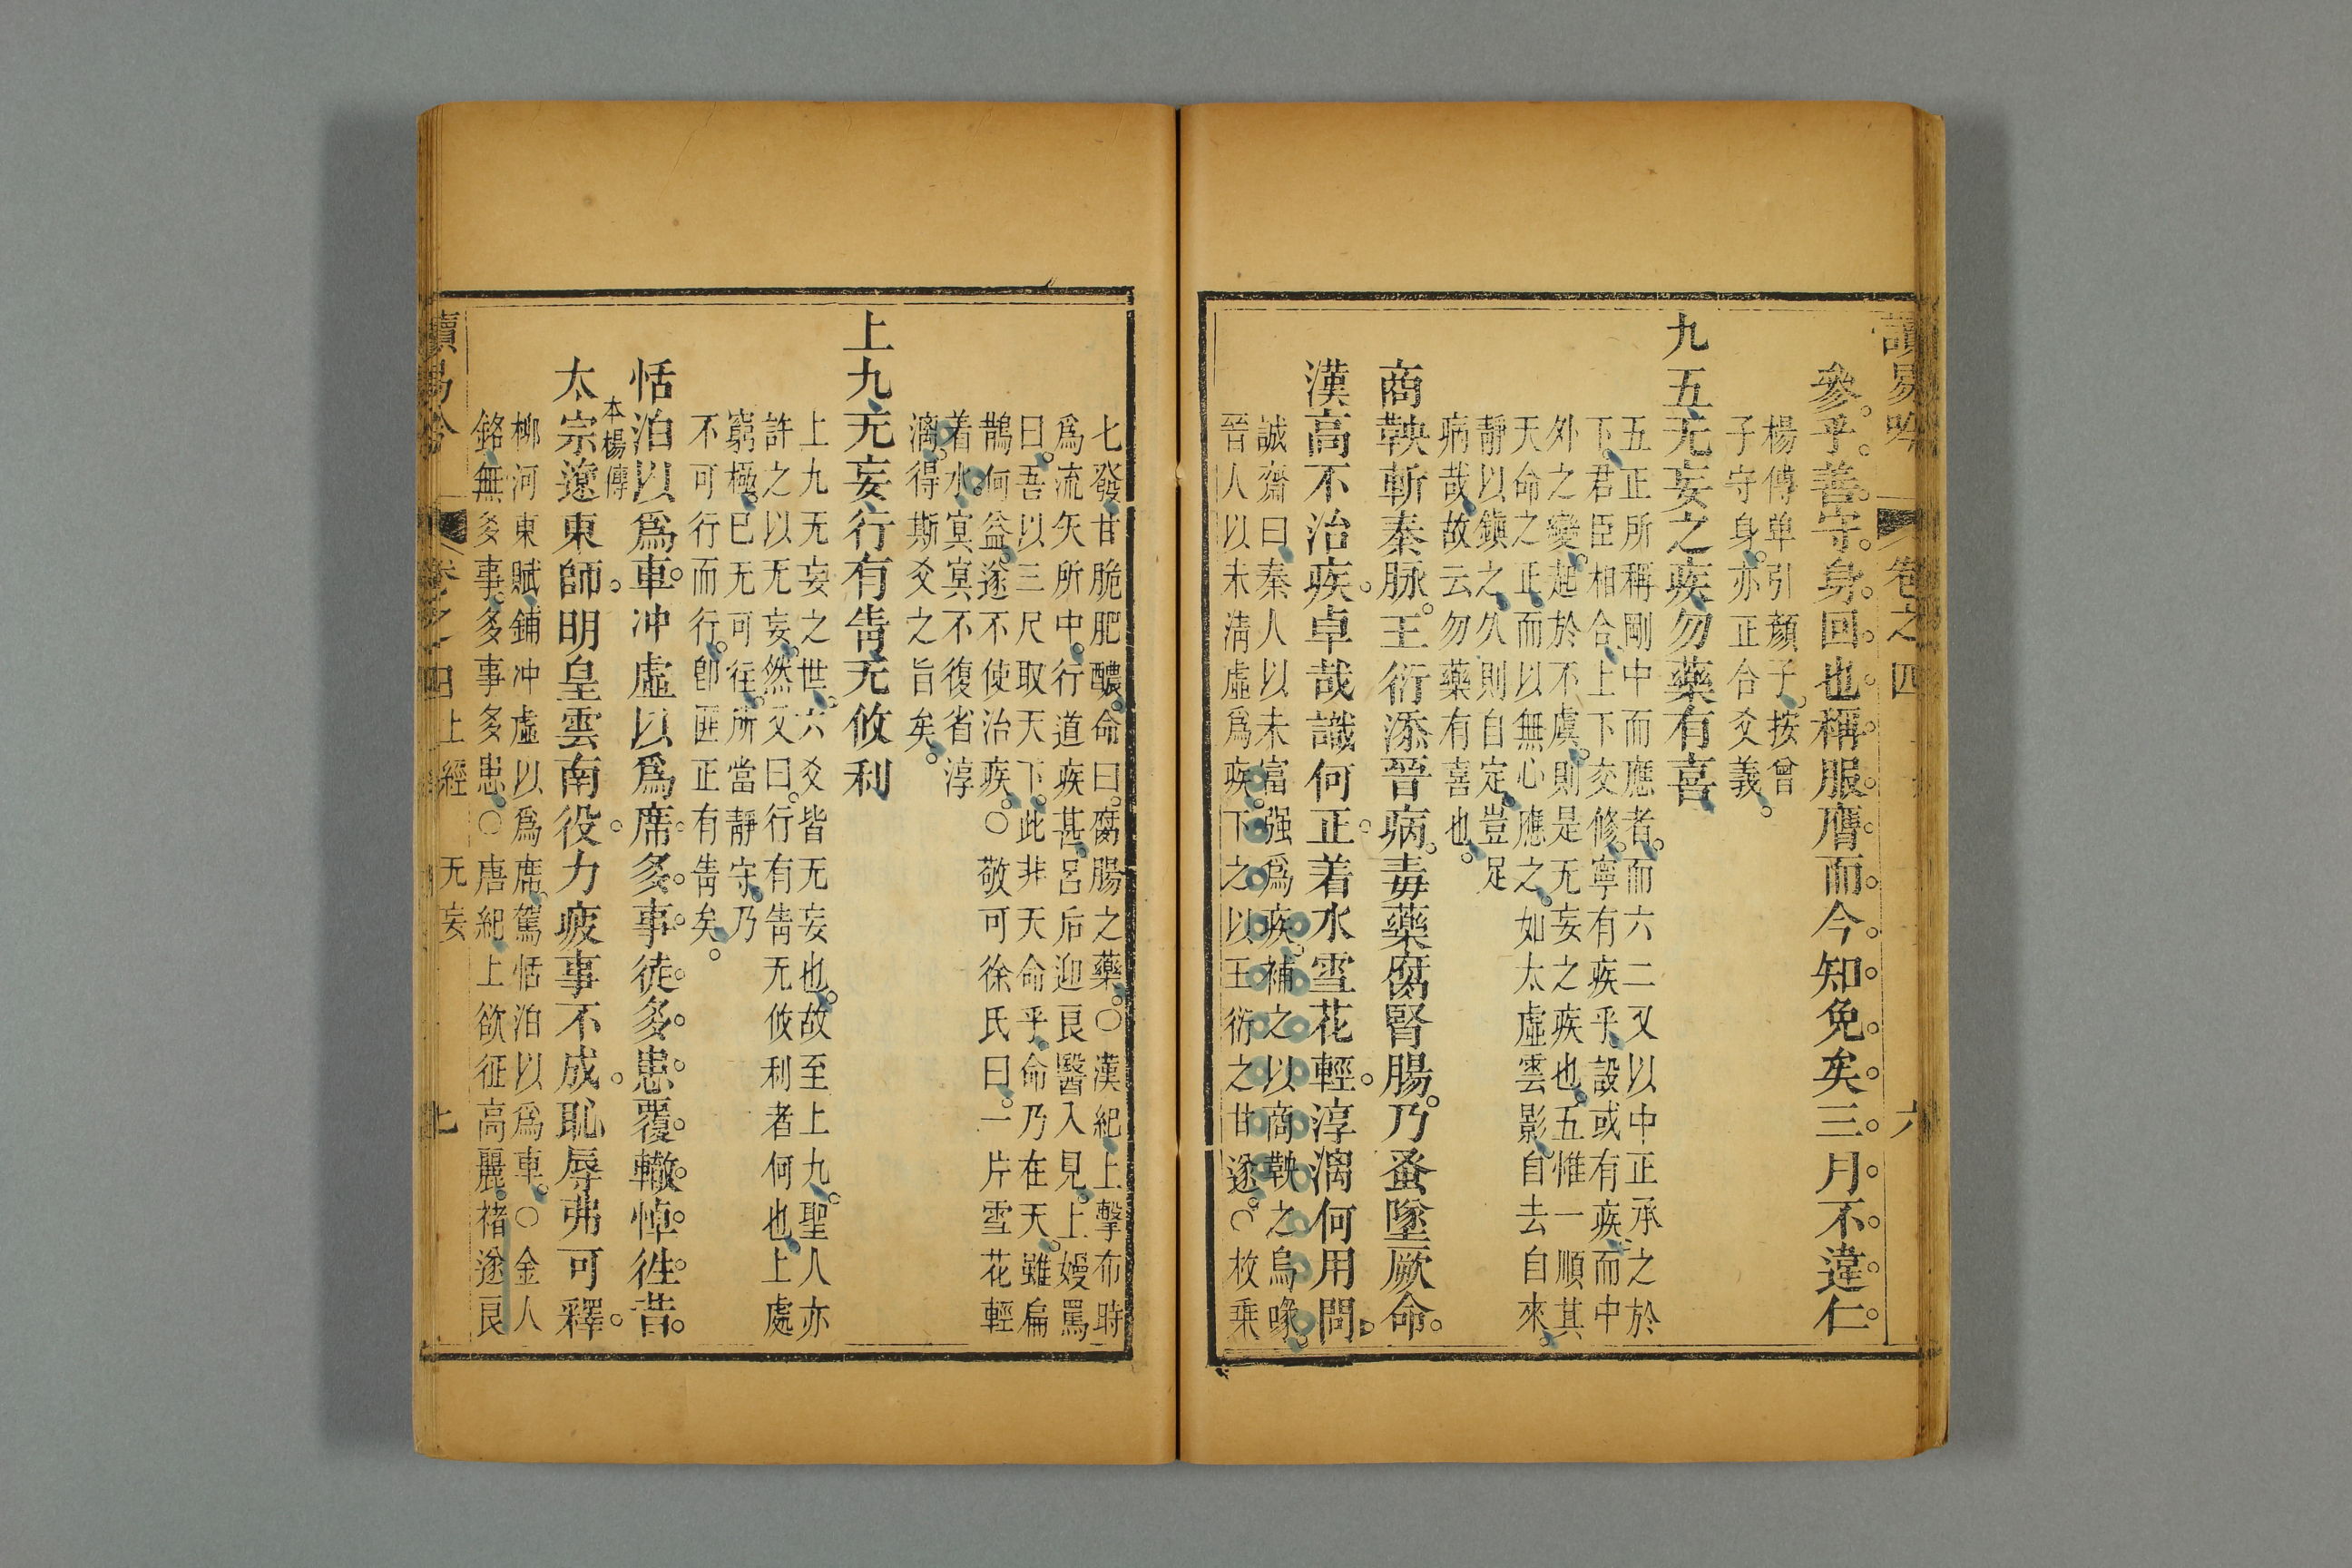 讀易吟
卷之四
六
參乎善守身回也稱服膺而今知免矣三月不違仁
楊傳单引顔子按曾
子守身亦正合爻義
九五无妄之疾勿藥有喜
五正所稱剛中而應者而六二又以中正承之於
下君臣相合上下交修寧有疾乎設或有疾而中
外之變起於不虞則是无妄之疾也五惟一順其
天命之正而以無心應之如太虛雲影自去自來
靜以鎮之久則自定豈足
病哉故云勿藥有喜也
商鞅斬秦脉王衍添晉病毒藥腐腎腸乃蚤墜厥命
漢高不治疾卓哉識何正着水雪花輕淳漓何用問
誠齋曰秦人以未富强爲疾補之以商鞅之烏喙
晉人以未淸虛爲疾下之以王衍之甘遂○枚乗
七發甘脆肥醲命曰腐腸之藥○漢紀上擊布時
爲流矢所中行道疾甚呂后迎良醫入見上嫚罵
曰吾以三尺取天下此非天命乎命乃在天雖扁
鵲何益遂不使治疾○敬可徐氏曰一片雪花輕
着水㝠㝠不復省淳
漓得斯爻之旨矣
上九无妄行有眚无攸利
上九无妄之世六爻皆无妄也故至上九聖人亦
許之以无妄然又曰行有眚无攸利者何也上處
窮極已无可往所當靜守乃
不可行而行卽匪正有眚矣
恬泊以爲車冲虛以爲席多事徒多患覆轍悼徃昔
本楊傳
太宗遼東師明皇雲南役力疲事不成恥辱弗可釋
柳河東賦鋪冲虛以爲席駕恬泊以爲車○金人
銘無多事多事多患○唐紀上欲征高麗褚遂良
讀易吟
卷之四
上經
无妄
七